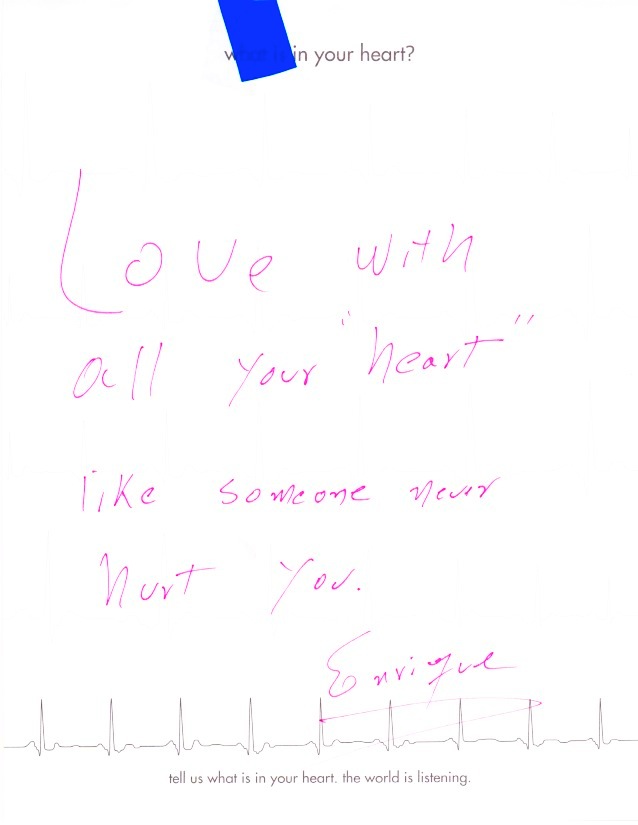 what is in your heart?
Love with
all your "heart"
like someone never
hurt you.
Enrique
tell us what is in your heart. the world is listening.